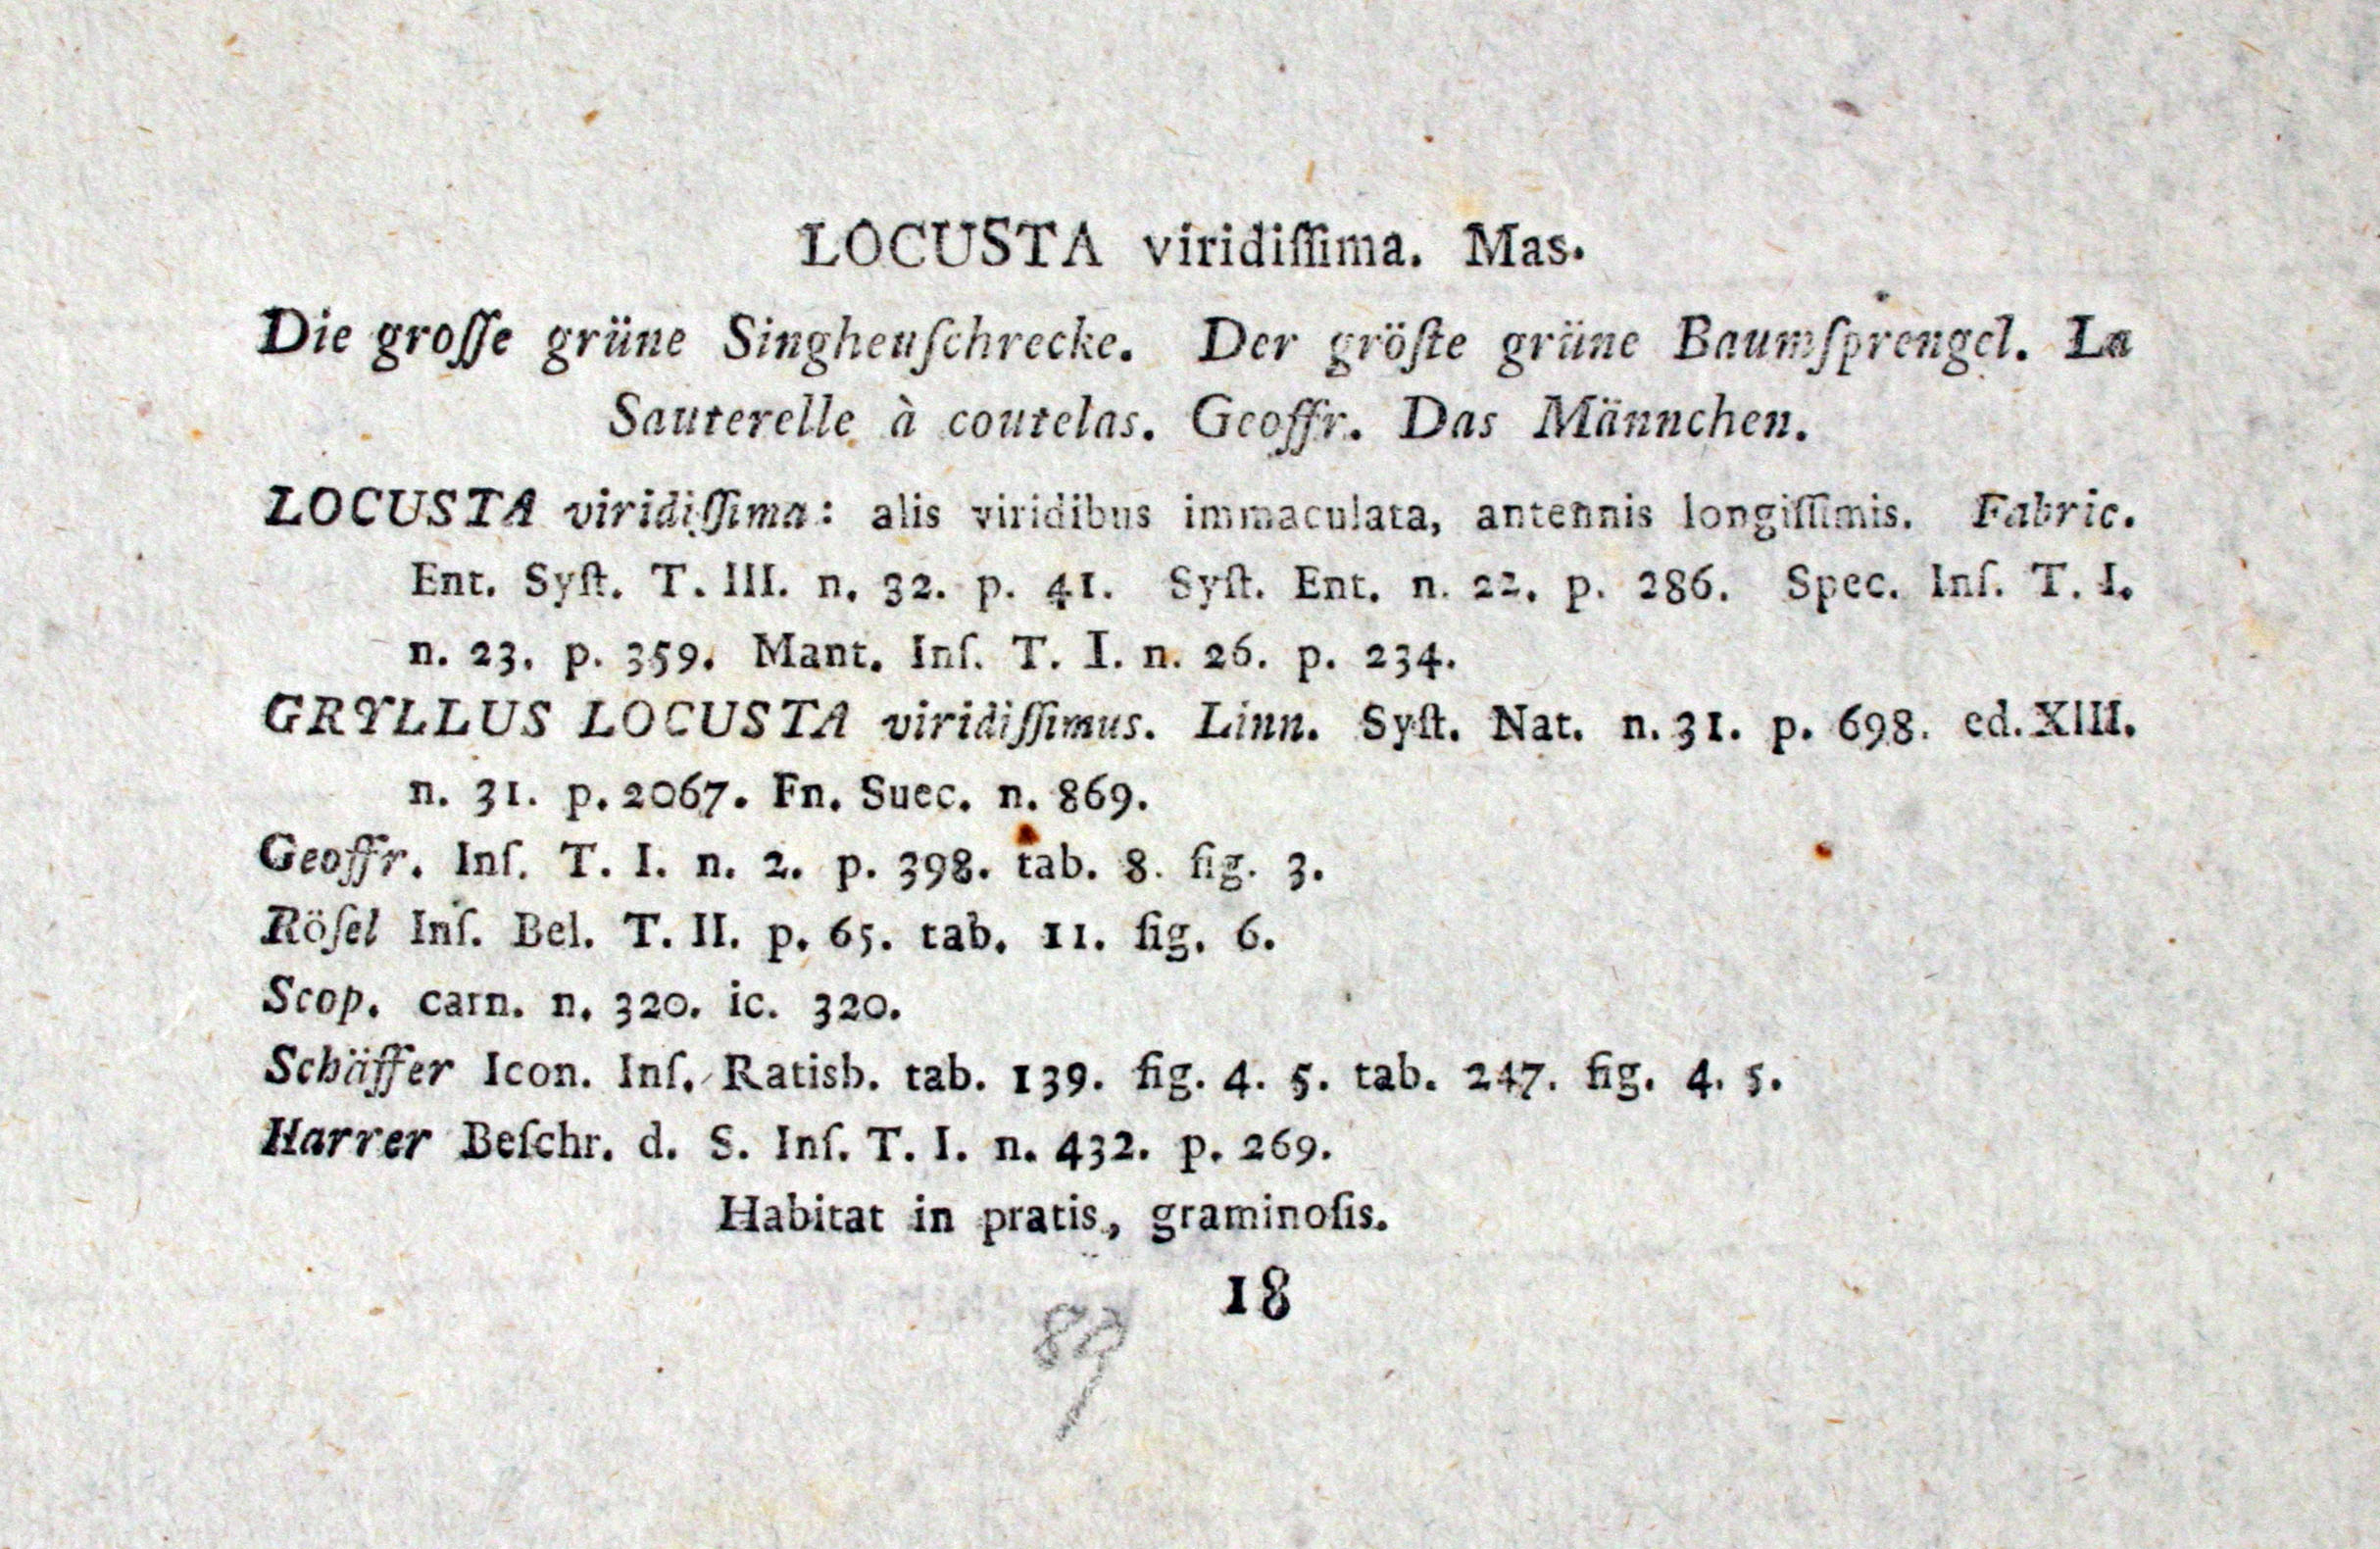 LOCUSTA viridiſſima. Mas.
Die groſſe grüne Singheuſchrecke. Der gröſte grüne Baumſprengel. La
Sauterelle à coutelas. Geoffr. Das Männchen.
LOCUSTA viridiſſima: alis viridibus immaculata, antennis longiſſimis. Fabric.
Ent. Syſt. T. III. n. 32. p. 41. Syſt. Ent. n. 22. p. 286. Spec. Inſ. T. I.
n. 23. p. 359. Mant. Inſ. T. I. n. 26. p. 234.
GRYLLUS LOCUSTA viridiſſimus. Linn. Syſt. Nat. n. 31. p. 698. ed. XIII.
n. 31. p. 2067. Fn. Suec. n. 869.
Geoffr. Inſ. T. I. n. 2. p. 398. tab. 8. fig. 3.
Röſel Inſ. Bel. T. II. p. 65. tab. 11. fig. 6.
Scop. carn. n. 320. ic. 320.
Schäffer Icon. Inſ. Ratisb. tab. 139. fig. 4. 5. tab. 247. fig. 4. 5.
Harrer Beſchr. d. S. Inſ. T. I. n. 432. p. 269.
Habitat in pratis, graminoſis.
18
89